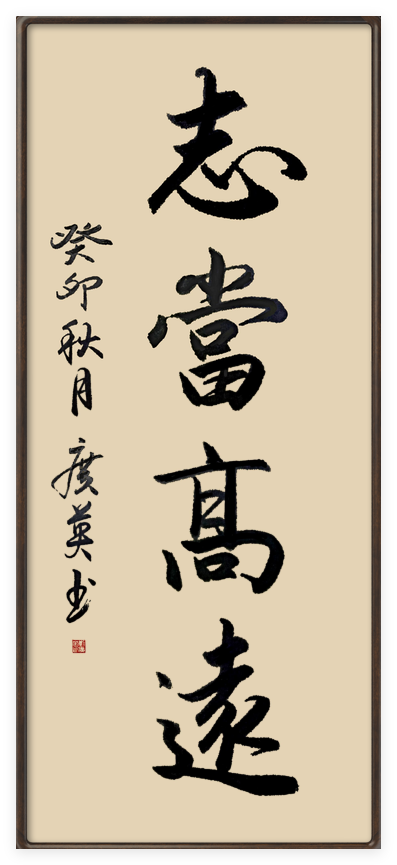 志當高遠
癸卯秋月 廣英书